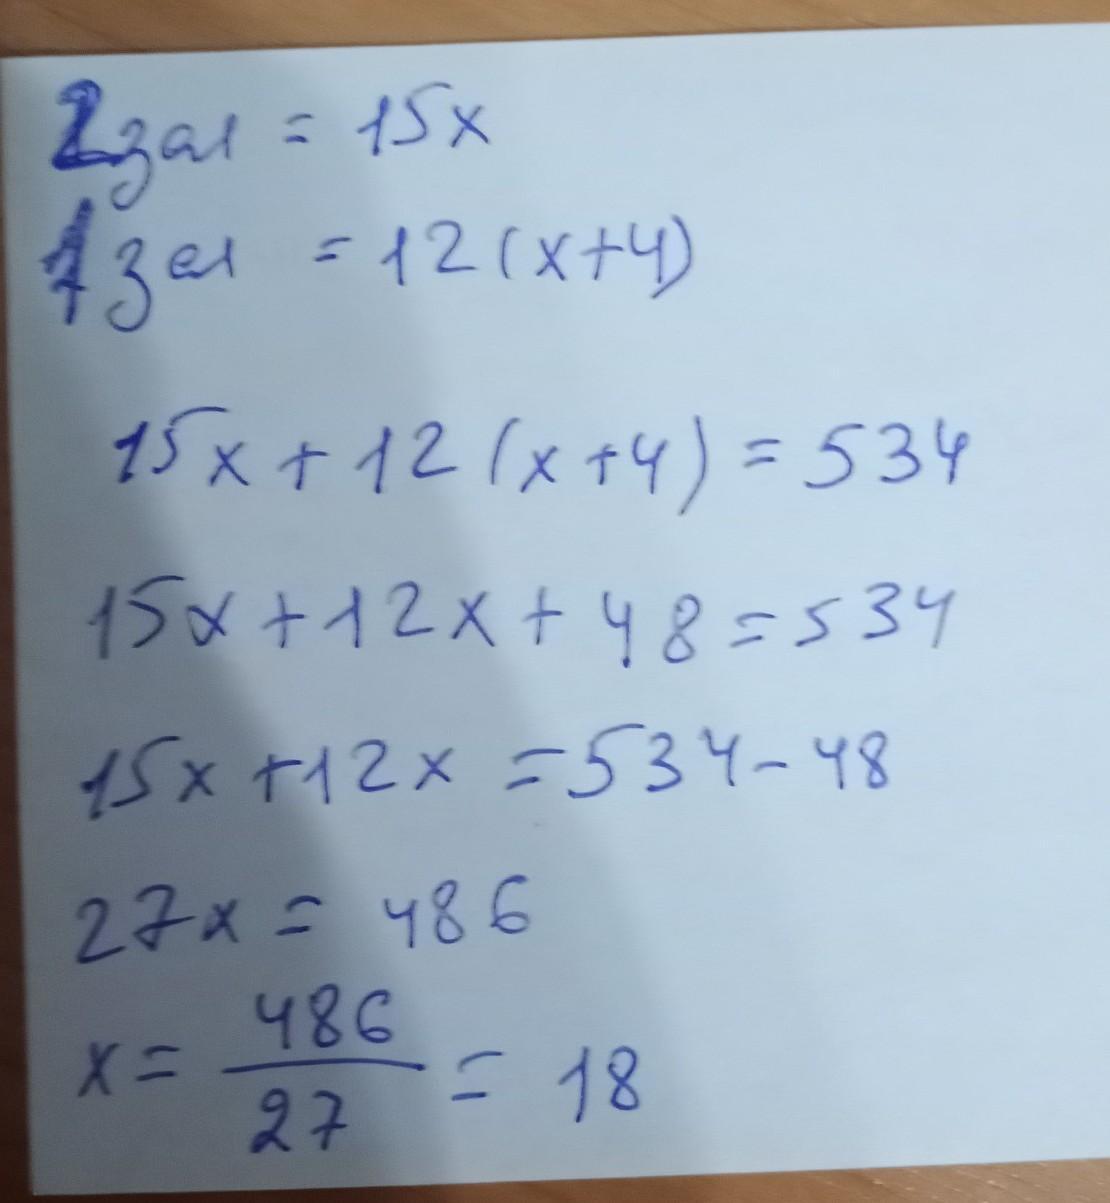 2 зал = 15x
1 зал = 12(x+4)
15x + 12(x+4) = 534
15x + 12x + 48 = 534
15x + 12x = 534 - 48
27x = 486
x = 486/27 = 18